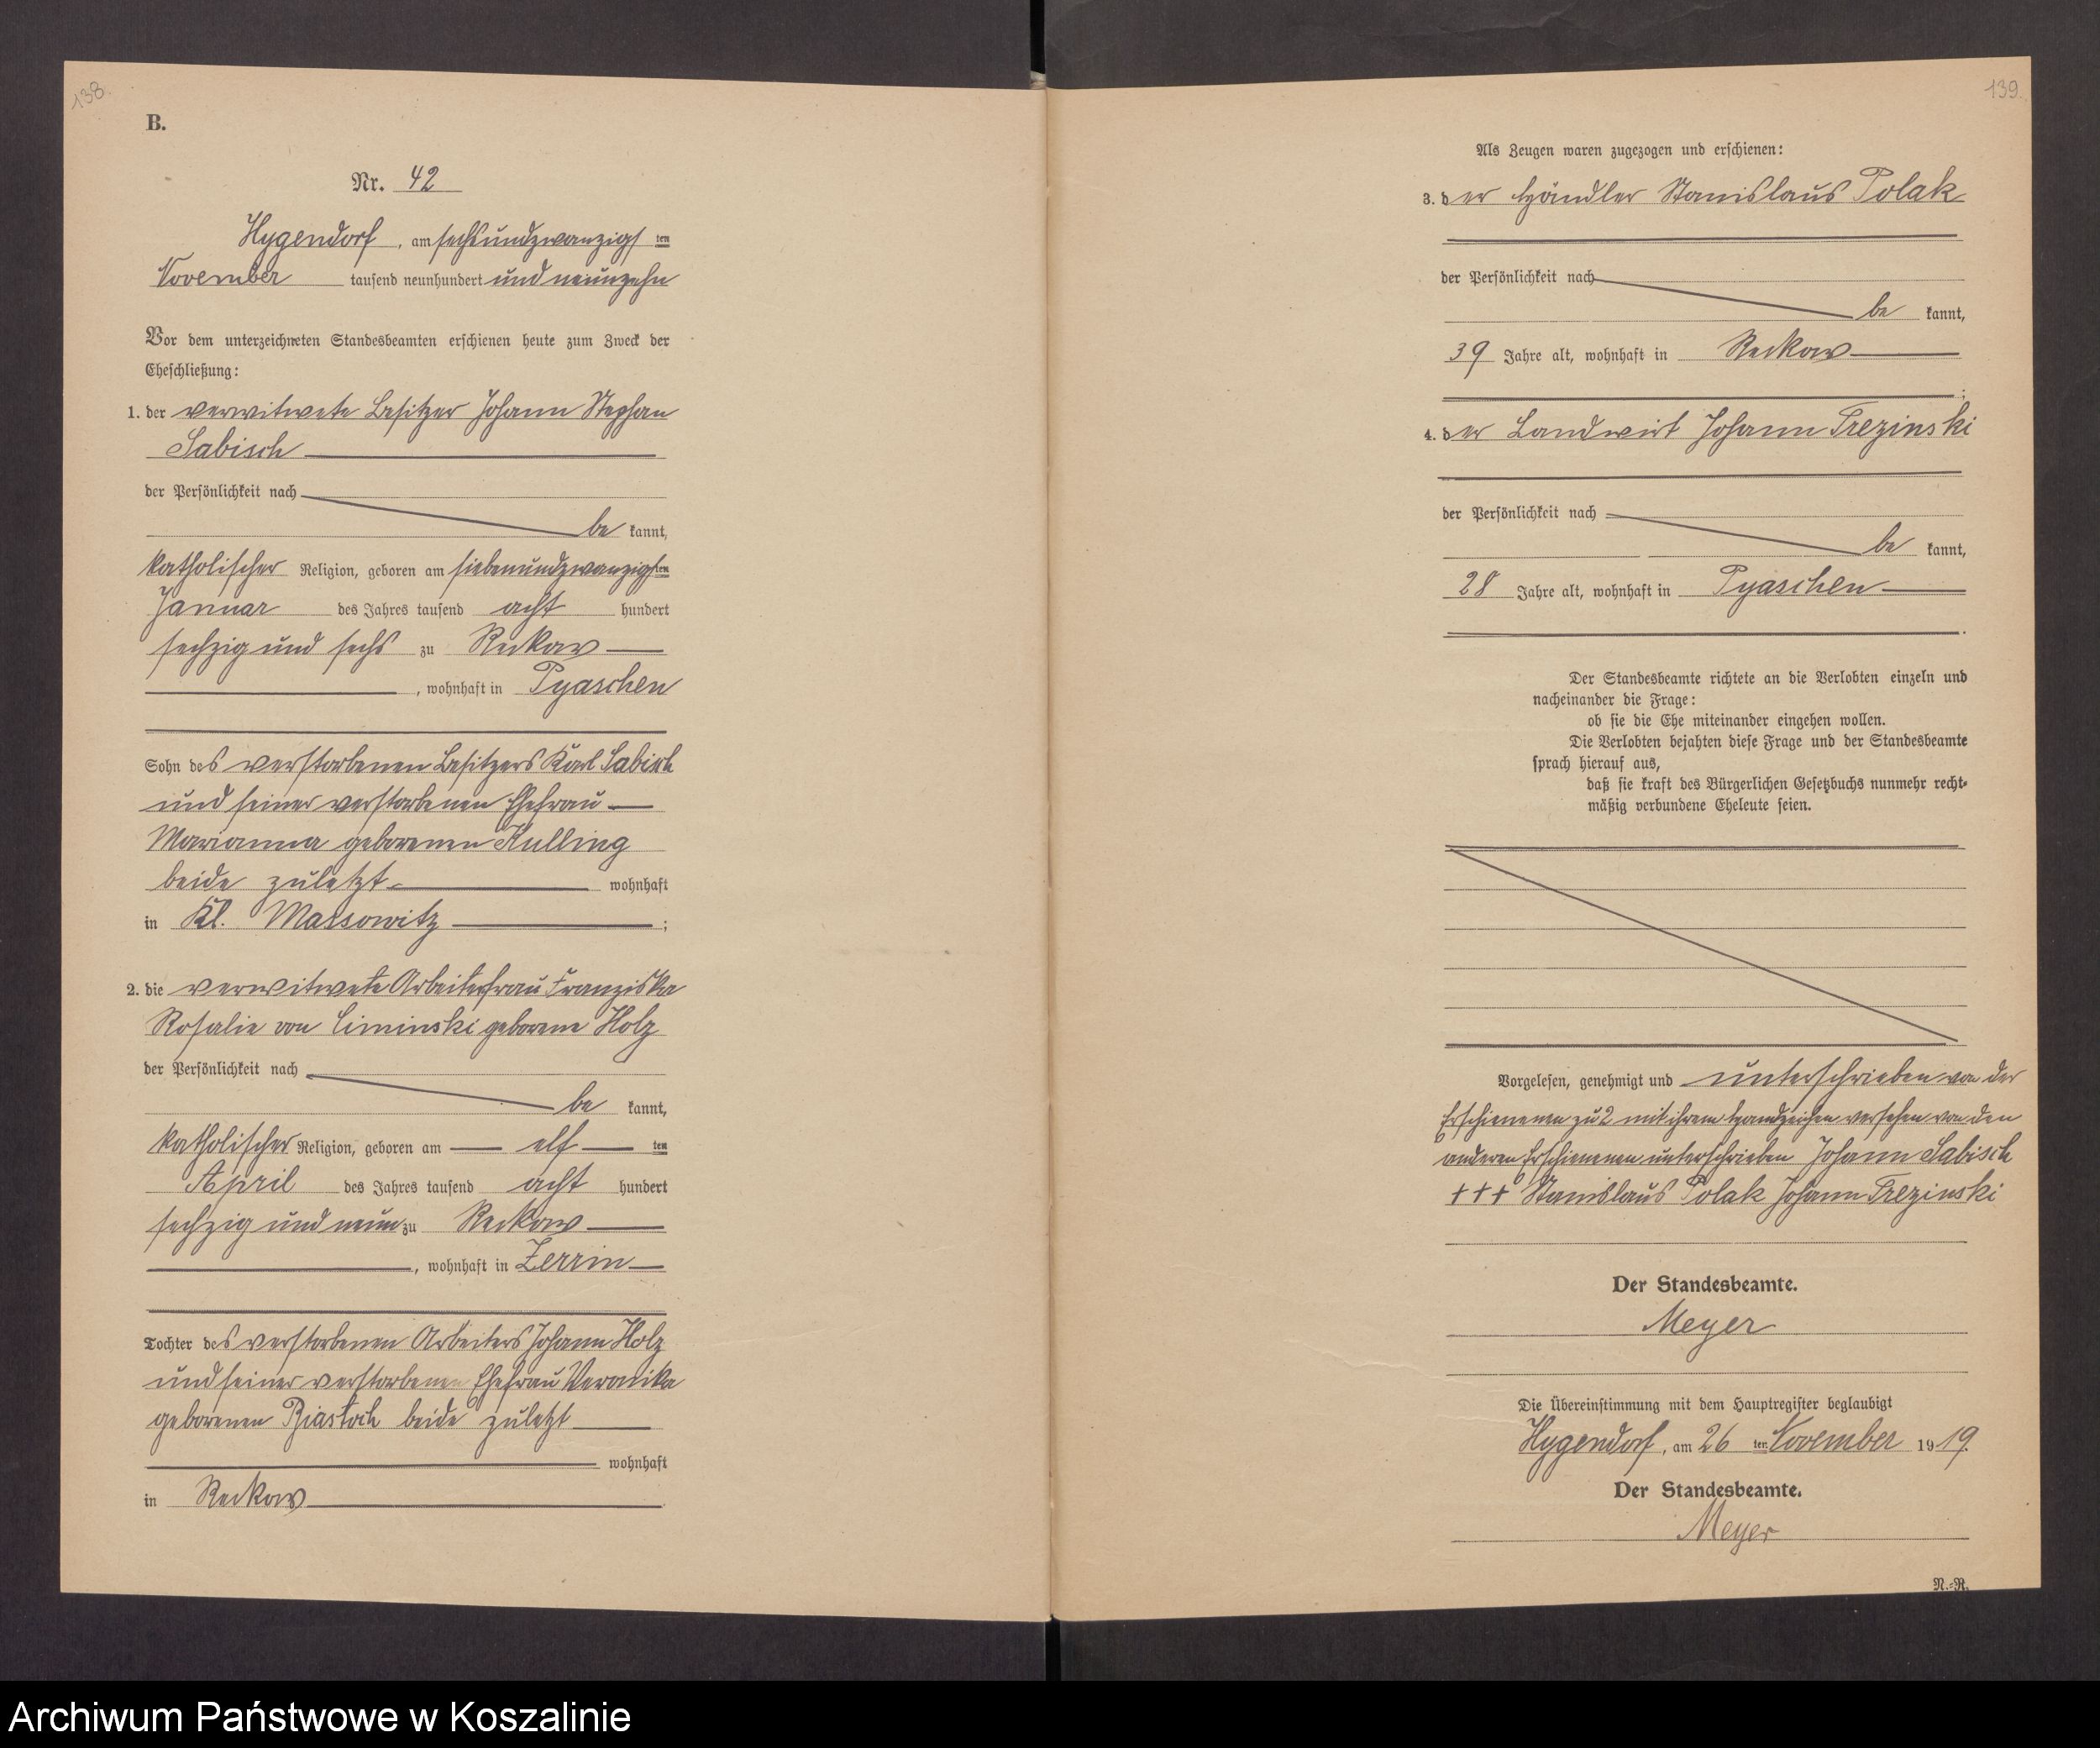 138.
B.
Nr. 42
Hygendorf, am sechsundzwanzigsten
November tausend neunhundert und neunzehn
Vor dem unterzeichneten Standesbeamten erschienen heute zum Zweck der
Eheschließung:
1. der verwitwete Besitzer Johann Stephan
Sabisch
der Persönlichkeit nach
be kannt,
katholischer Religion, geboren am siebenundzwanzigsten
Januar des Jahres tausend acht hundert
sechzig und sechs zu Reckow
, wohnhaft in Pyaschen
Sohn des verstorbenen Besitzers Karl Sabisch
und seiner verstorbenen Ehefrau
Marianna geborenen Kulling
beide zuletzt wohnhaft
in Kl. Massowitz ;
2. die verwitwete Arbeiterfrau Franziska
Rosalie von Ciminski geborene Holz
der Persönlichkeit nach
be kannt,
katholischer Religion, geboren am elf ten
April des Jahres tausend acht hundert
sechzig und neun zu Reckow
, wohnhaft in Zerrin
Tochter des verstorbenen Arbeiters Johann Holz
und seiner verstorbenen Ehefrau Veronika
geborenen Biastoch beide zuletzt
wohnhaft
in Reckow
139.
Als Zeugen waren zugezogen und erschienen:
3. der Händler Stanislaus Polak
der Persönlichkeit nach
be kannt,
39 Jahre alt, wohnhaft in Reckow
;
4. der Landwirt Johann Trezinski
der Persönlichkeit nach
be kannt,
28 Jahre alt, wohnhaft in Pyaschen
.
Der Standesbeamte richtete an die Verlobten einzeln und
nacheinander die Frage:
ob sie die Ehe miteinander eingehen wollen.
Die Verlobten bejahten diese Frage und der Standesbeamte
sprach hierauf aus,
daß sie kraft des Bürgerlichen Gesetzbuchs nunmehr recht-
mäßig verbundene Eheleute seien.
Vorgelesen, genehmigt und unterschrieben von der
Erschienenen zu 2 mit ihrem Handzeichen versehen von den
anderen Erschienenen unterschrieben Johann Sabisch
+++ Stanislaus Polak Johann Trezinski
Der Standesbeamte.
Meyer
Die Übereinstimmung mit dem Hauptregister beglaubigt
Hygendorf, am 26 ten November 1919.
Der Standesbeamte.
Meyer
N.-R.
Archiwum Państwowe w Koszalinie